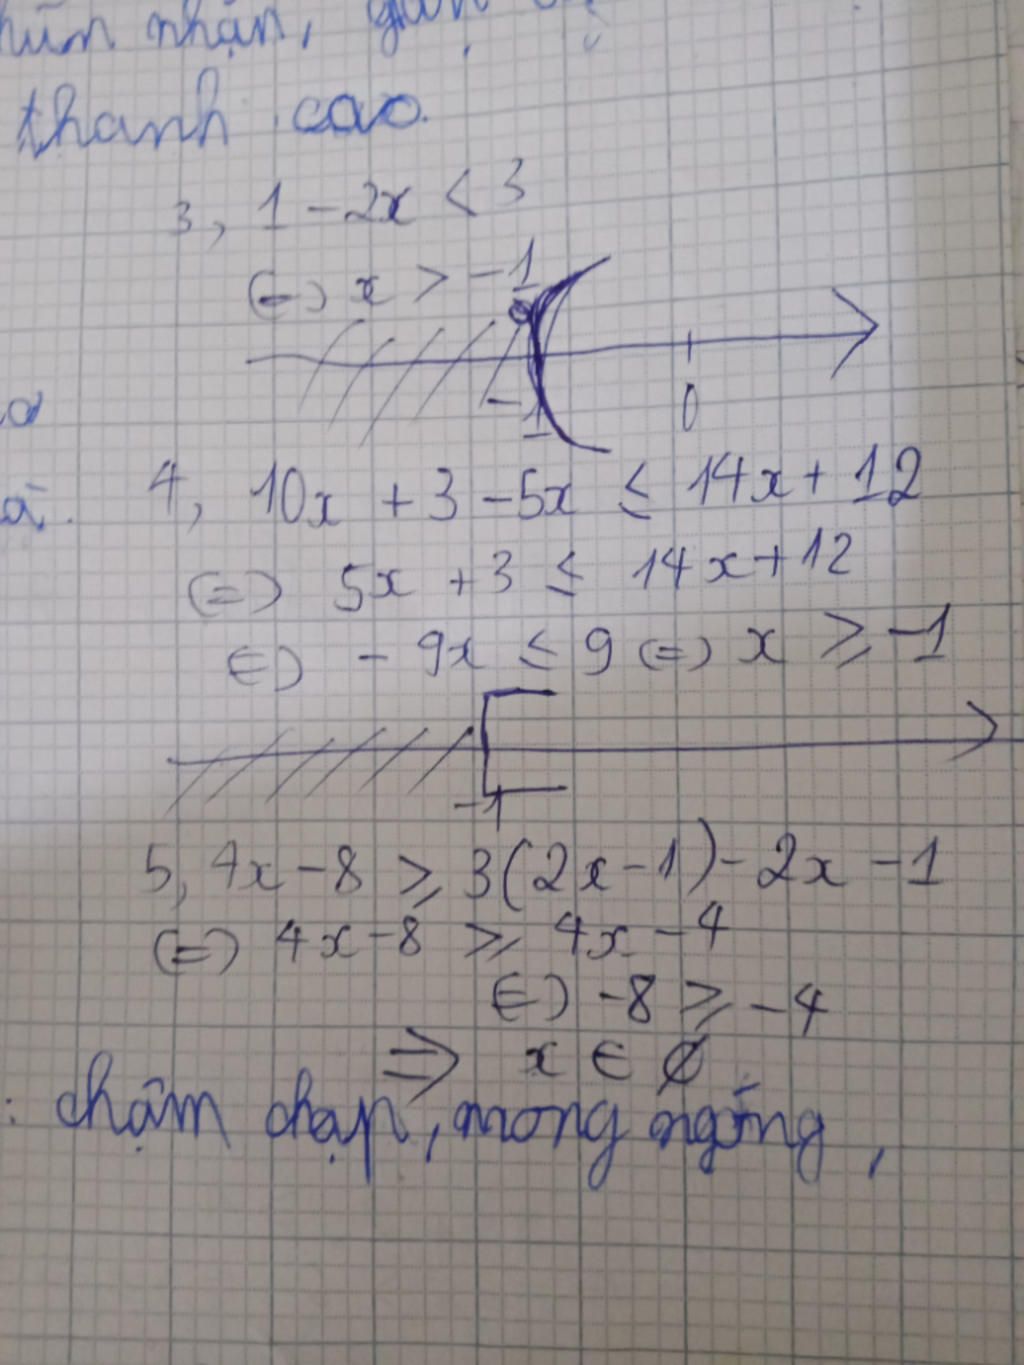 nhận,
thanh cao.
3, 1 - 2x < 3
(=) x > -1
-1 0
4, 10x + 3 - 5x ≤ 14x + 12
(=) 5x + 3 ≤ 14x + 12
(=) - 9x ≤ 9 (=) x ≥ -1
-1
5, 4x - 8 ≥ 3(2x - 1) - 2x - 1
(=) 4x - 8 ≥ 4x - 4
(=) -8 ≥ -4
=> x ∈ ∅
: chậm chạp, mong ngóng,